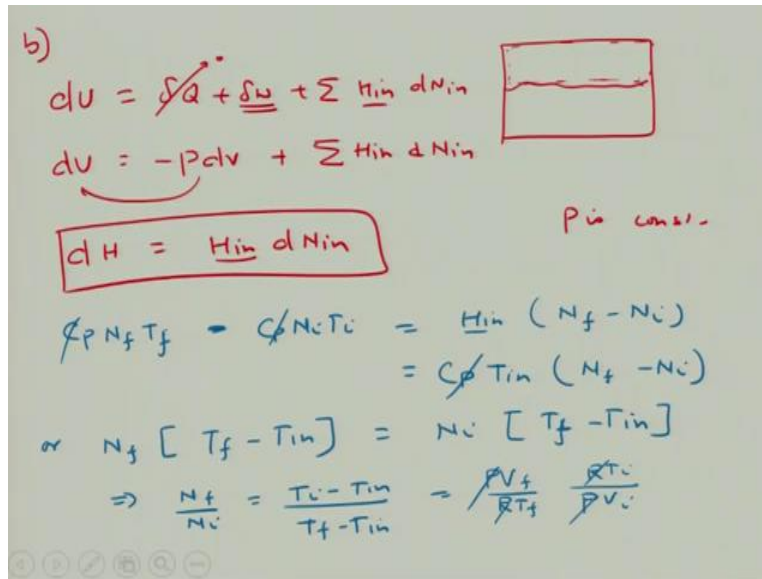 b)
dU = δQ + δw + Σ Hin dNin
dU = -Pdv + Σ Hin dNin
P is const.
dH = Hin dNin
CpNfTf - CpNiTi = Hin (Nf - Ni)
= Cp Tin (Nf - Ni)
or Nf [Tf - Tin] = Ni [Tf - Tin]
⇒ Nf/Ni = Ti - Tin/Tf - Tin = PVf/RTf RTi/PVi